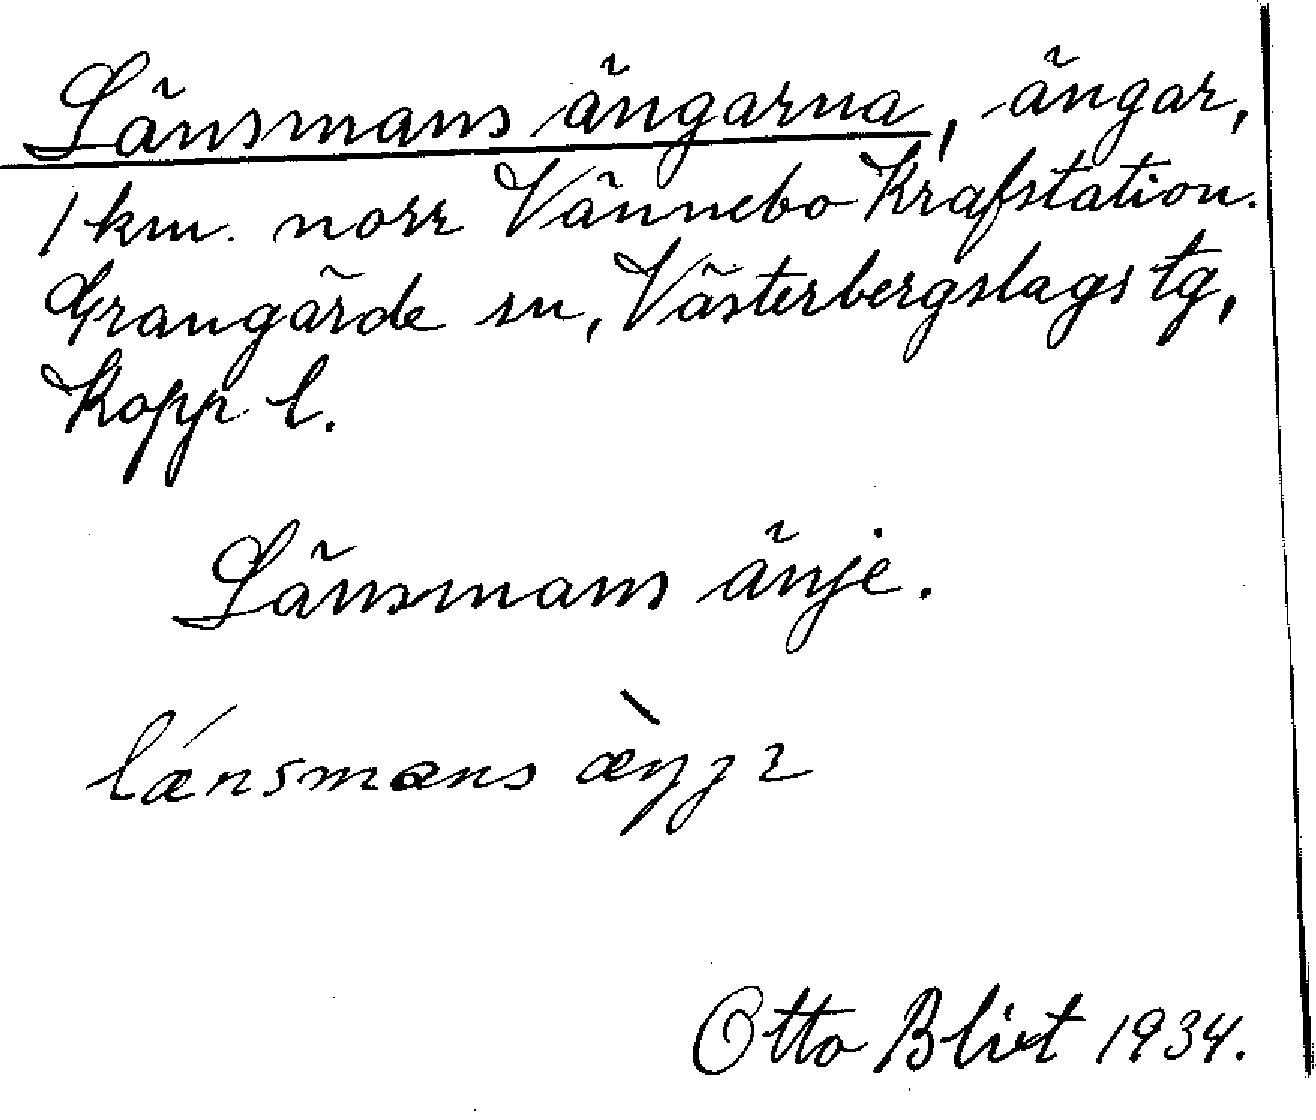 Länsmans ängarna, ängar,
1 km. norr Vännebo Krafstation.
Grangärde sn, Västerbergslags tg,
Kopp l.
Länsmans änje.
lǽnsmans æ̀ŋjɘ
Otto Blixt 1934.